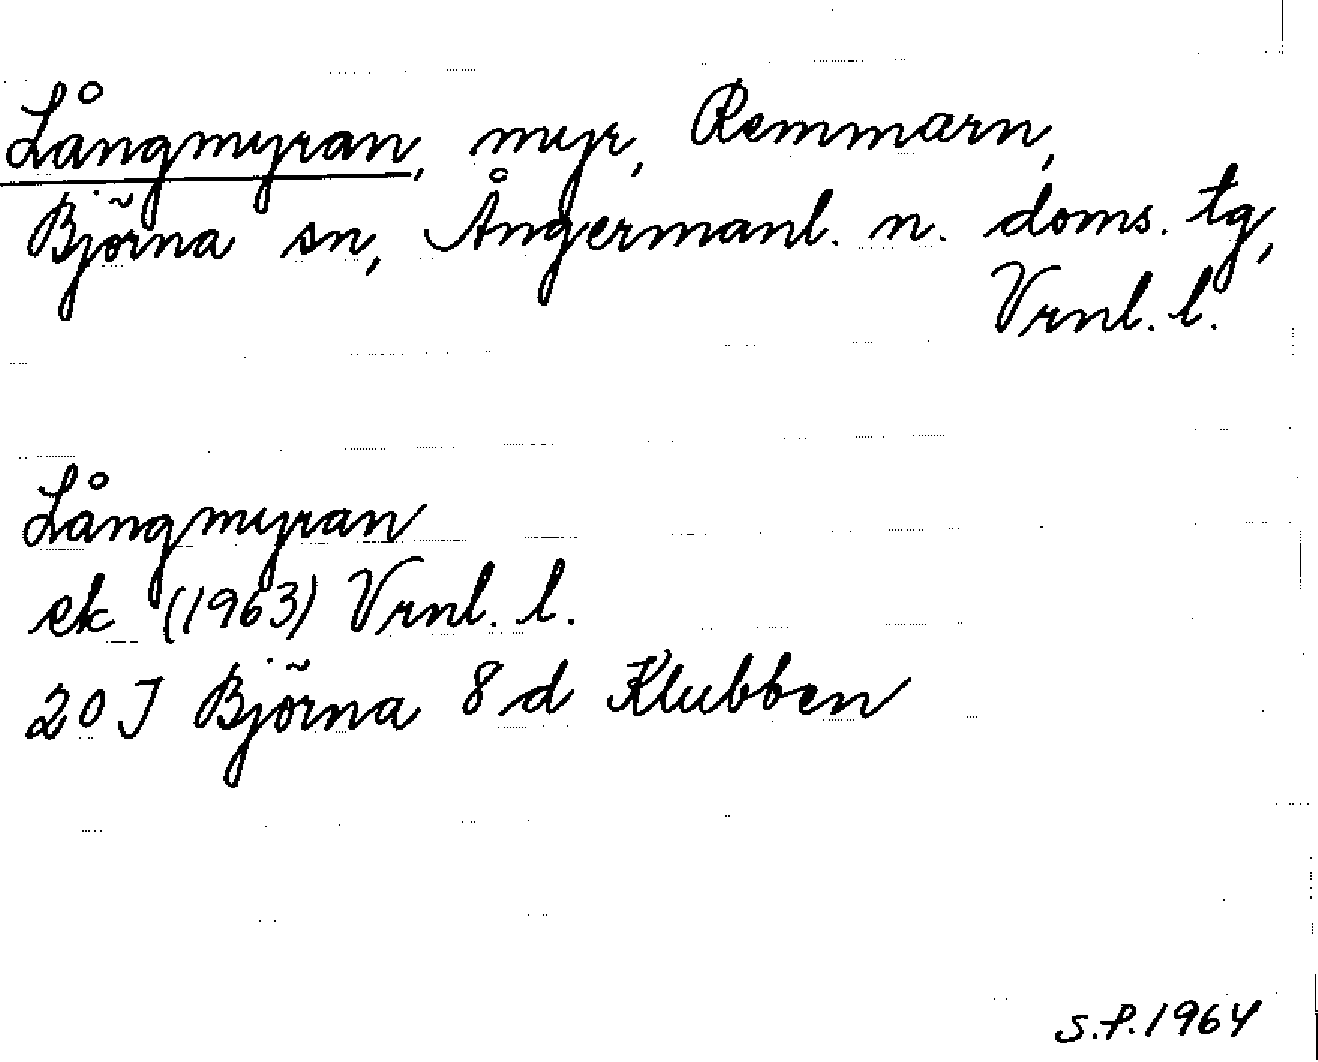 Långmyran, myr, Remmarn,
Björna sn, Ångermanl. n. doms. tg,
Vrnl. l.
Långmyran
ek (1963) Vrnl. l.
20 J Björna 8 d Klubben
S.P. 1964